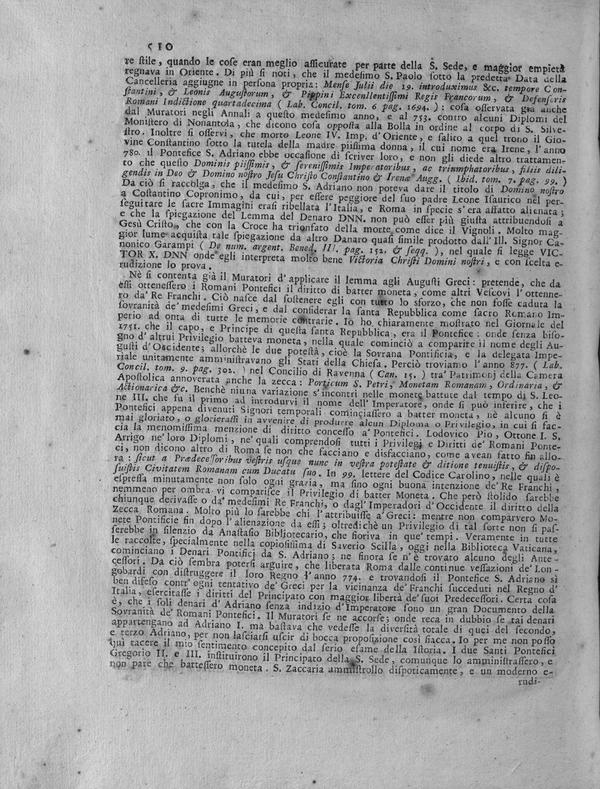 510
re stile, quando le cose eran meglio assicurate per parte della S. Sede, e maggior empietà
regnava in Oriente. Di più si noti, che il medesimo S. Paolo sotto la predetta Data della
Cancelleria aggiugne in persona propria: Mense Julii die 19. introduximus &c. tempore Constantini, & Leonis Augustorum, & Pippini Excellentissimi Regis Francorum, & Defensoris
Romani Indictione quartadecima ( Lab. Concil. tom. 6 pag. 1694. ) : cosa osservata già anche
dal Muratori negli Annali a questo medesimo anno, e al 753. contro alcuni Diplomi del
Monistero di Nonantola, che dicono cosa opposta alla Bolla in ordine al corpo di S. Silvestro. Inoltre si osservi, che morto Leone IV. Imp. d'Oriente, e salito a quel trono il Giovine Constantino sotto la tutela della madre piissima donna, il cui nome era Irene, l'anno
780. il Pontefice S. Adriano ebbe occasione di scriver loro, e non gli diede altro trattamento che questo Dominis piissimis, & serenissimis Imperatoribus, ac triumphatoribus, filiis diligendis in Deo & Domino nostro Jesu Christo Constantino & Irene Augg. ( Ibid. tom. 7. pag. 99. )
Da ciò si raccolga, che il medesimo S. Adriano non poteva dare il titolo di Domino nostro
a Costantino Copronimo, da cui, per essere peggiore del suo padre Leone Isaurico nel perseguitare le sacre Immagini erasi ribellata l'Italia, e Roma in specie s'era affatto alienata;
e che la spiegazione del Lemma del Denaro DNN. non può esser più giusta attribuendosi a
Gesù Cristo, che con la Croce ha trionfato della morte come dice il Vignoli. Molto maggior lume acquista tale spiegazione da altro Danaro quasi simile prodotto dall'Ill. Signor Canonico Garampi ( De num. argent. Bened. III. pag. 152. & seqq. ), nel quale si legge VICTOR X. DNN onde egli interpreta molto bene Victoria Christi Domini nostri, e con iscelta erudizione lo prova.
Nè si contenta già il Muratori d'applicare il lemma agli Augusti Greci: pretende, che da
essi ottenessero i Romani Pontefici il diritto di batter moneta, come altri Vescovi l'ottennero da' Re Franchi. Ciò nasce dal sostenere egli con tutto lo sforzo, che non fosse caduta la
sovranità de' medesimi Greci, e dal considerar la santa Repubblica come sacro Romano Imperio ad onta di tutte le memorie contrarie. Io ho chiaramente mostrato nel Giornale del
1751. che il capo, e Principe di questa santa Repubblica, era il Pontefice: onde senza bisogno d'altrui Privilegio batteva moneta, nella quale cominciò a comparire il nome degli Augusti d'Occidente; allorchè le due potestà, cioè la Sovrana Pontificia, e la delegata Imperiale unitamente amministravano gli Stati della Chiesa. Perciò troviamo l'anno 877. ( Lab.
Concil. tom. 9. pag. 302. ) nel Concilio di Ravenna ( Can. 15. ) tra' Patrimonj della Camera
Apostolica annoverata anche la zecca : Porticum S. Petri, Monetam Romanam, Ordinaria, &
Actionarica &c. Benchè niuna variazione s'incontri nelle monete battute dal tempo di S. Leone III. che fu il primo ad introdurvi il nome dell'Imperatore, onde si può inferire, che i
Pontefici appena divenuti Signori temporali cominciassero a batter moneta, nè alcuno si è
mai gloriato, o glorierassi in avvenire di produrre alcun Diploma o Privilegio, in cui si faccia la menomissima menzione di diritto concesso a' Pontefici. Lodovico Pio, Ottone I. S.
Arrigo ne' loro Diplomi, ne' quali comprendosi tutti i Privilegi e Diritti de' Romani Pontefici, non dicono altro di Roma se non che facciano e disfacciano, come avean fatto fin allora : sicut a Praedecessoribus vestris usque nunc in vestra potestate & ditione tenuistis, & disposuistis Civitatem Romanam cum Ducatu suo. In 99. lettere del Codice Carolino, nelle quali è
espressa minutamente non solo ogni grazia, ma fino ogni buona intenzione de' Re Franchi,
nemmeno per ombra vi comparisce il Privilegio di batter Moneta. Che però stolido sarebbe
chiunque derivasse o da' medesimi Re Franchi, o dagl'Imperadori d'Occidente il diritto della
Zecca Romana. Molto più lo sarebbe chi l'attribuisse a' Greci: mentre non comparvero Monete Pontificie fin dopo l'alienazione da essi; oltredichè un Privilegio di tal sorte non si passerebbe in silenzio da Anastasio Bibliotecario, che fioriva in que' tempi. Veramente in tutte
le raccolte, specialmente nella copiosissima di Saverio Scilla, oggi nella Biblioteca Vaticana,
cominciano i Denari Pontificj da S. Adriano; ne finora se n'è trovato alcuno degli Antecessori. Da ciò sembra potersi arguire, che liberata Roma dalle continue vessazioni de' Longobardi con distruggere il loro Regno l'anno 774. e trovandosi il Pontefice S. Adriano sì
ben difeso contr'ogni tentativo de' Greci per la vicinanza de' Franchi succeduti nel Regno d'
Italia, esercitasse i diritti del Principato con maggior libertà de' suoi Predecessori. Certa cosa
è, che i soli denari d'Adriano senza indizio d'Imperatore sono un gran Documento della
Sovranità de' Romani Pontefici. Il Muratori se ne accorse; onde reca in dubbio se tai denari
appartengano ad Adriano I. ma bastava che vedesse la diversità totale di quei del secondo,
e terzo Adriano, per non lasciarsi uscir di bocca proposizione così fiacca. Io per me non posso
qui tacere il mio sentimento concepito dal serio esame della Istoria. I due Santi Pontefici
Gregorio II. e III. instituirono il Principato della S. Sede, comunque lo amministrassero, e
non pare che battessero moneta. S. Zaccaria amministrollo dispoticamente, e un moderno e-
rudi-